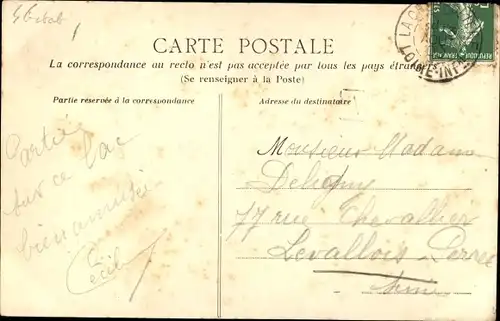 CARTE POSTALE
La correspondance au recto n'est pas acceptée par tous les pays étrangers
(Se renseigner à la Poste)
Partie réservée à la correspondance
Adresse du destinataire
sur ce lac
bien
Cécile
Monsieur Madame
77 rue Chevallier
Levallois-Perret
Seine